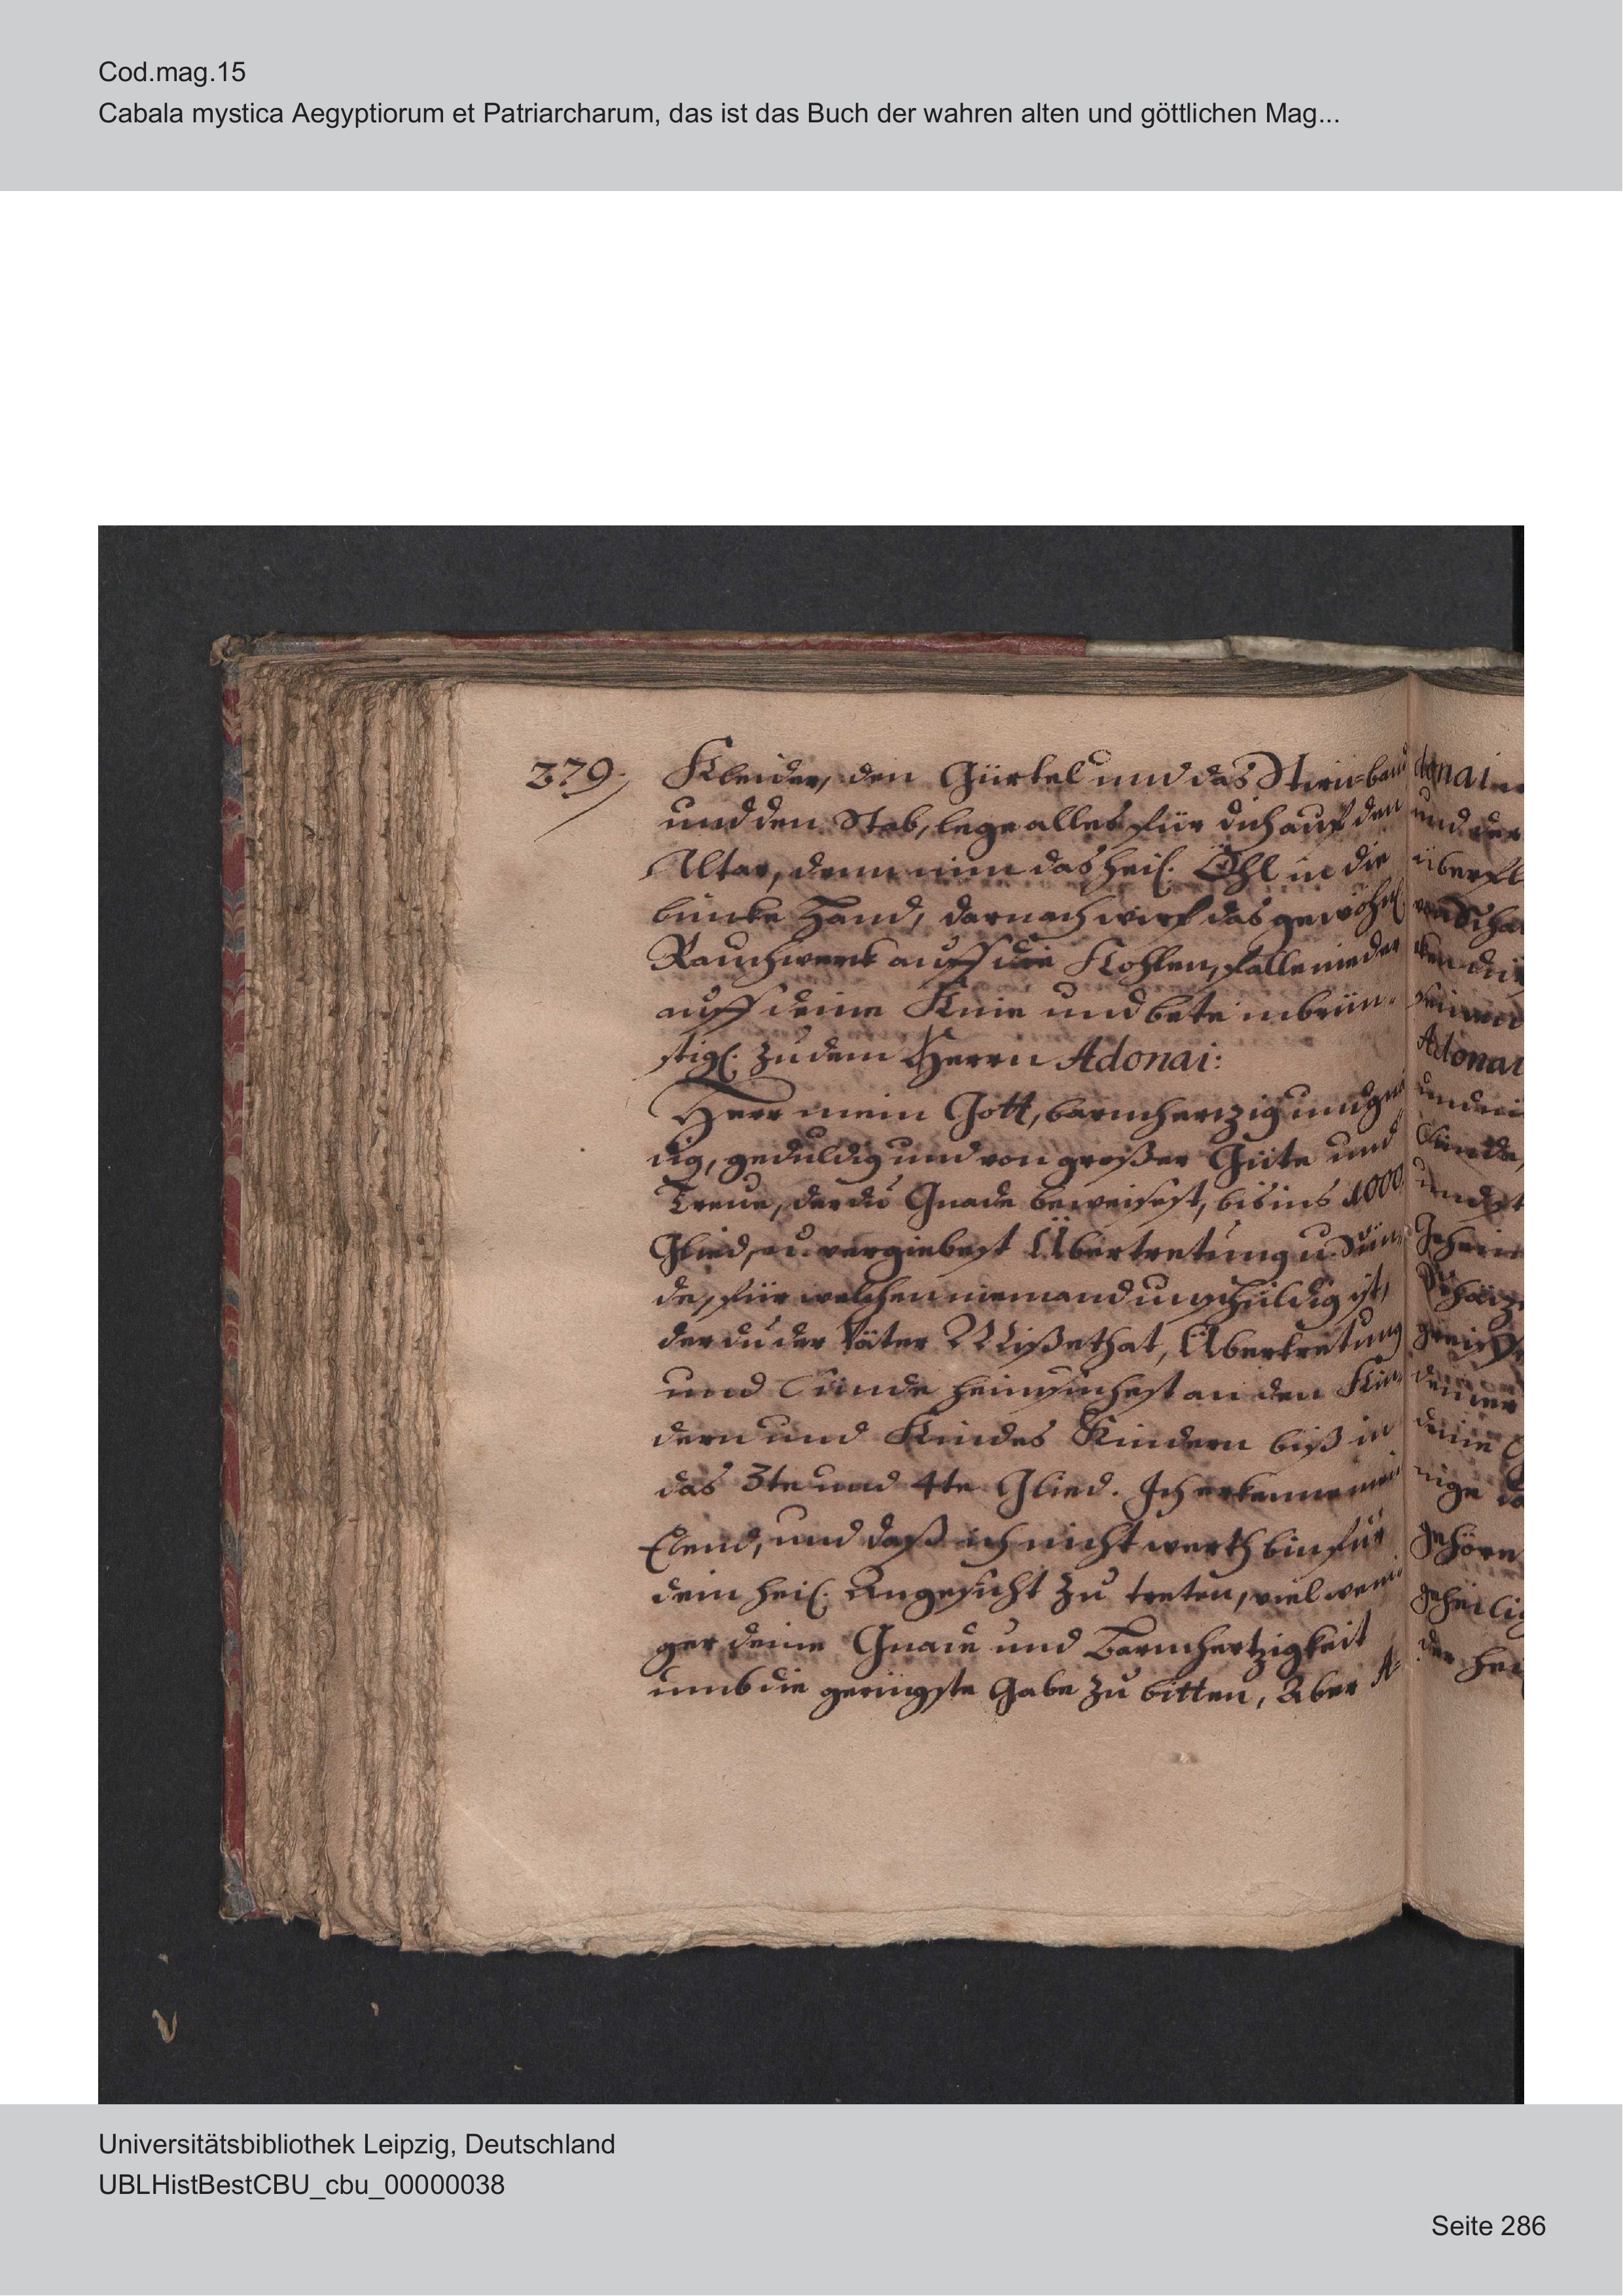 Cod.mag.15
Cabala mystica Aegyptiorum et Patriarcharum, das ist das Buch der wahren alten und göttlichen Mag...
279.
Kleider, den Gürtel und das Stirn-band
und den Stab, lege alles für dich auf den
Altar, denn nim das heil. Öhl in die
lincke Hand, darnach wirf das gewöhnl.
Rauchwerk auff die Kohlen, falle nieder
auff deine Knie und bete inbrün-
stigl. zu dem Herrn Adonai:
Herr mein Gott, barmhertzig und gnä
dig, geduldig und von großer Güte und
Treue, der du Gnade beweisest, bis ins 1000.
Glied, u. vergiebest Übertretung u. Sün-
de, für welchen niemand unschuldig ist,
der du der Väter Mißethat, Übertretung
und Sünde heimsuchest an den Kin-
dern und Kindes Kindern biß in
das 3te und 4te Glied. Ich erkenne mein
Elend, und daß ich nicht werth bin für
dein heil. Angesicht zu treten, viel weni
ger deine Gnade und Barmhertzigkeit
umb die geringste Gabe zu bitten, Aber A-
donai
und der
überfl
Adonai
und
Sünde,
deiner
deine
nige
gehören
geheilig
der hei
Universitätsbibliothek Leipzig, Deutschland
UBLHistBestCBU_cbu_00000038
Seite 286